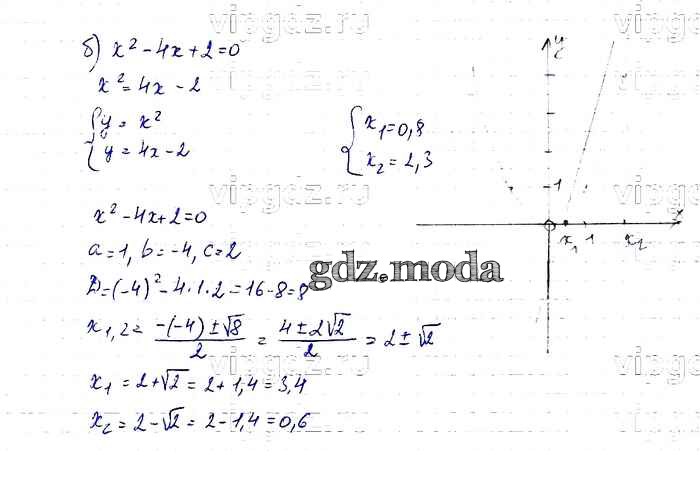 б) x² - 4x + 2 = 0
x² = 4x - 2
{ y = x²
{ y = 4x - 2
{ x₁ = 0,8
{ x₂ = 2,3
x² - 4x + 2 = 0
a = 1, b = -4, c = 2
D = (-4)² - 4·1·2 = 16 - 8 = 8
x₁,₂ = (-(-4) ± √8)/2 = (4 ± 2√2)/2 = 2 ± √2
x₁ = 2 + √2 = 2 + 1,4 = 3,4
x₂ = 2 - √2 = 2 - 1,4 = 0,6
y
1
x₁ 1 x₂
x
gdz.moda
vipgdz.ru
vipgdz.ru
vipgdz.ru
vipgdz.ru
vipgdz.ru